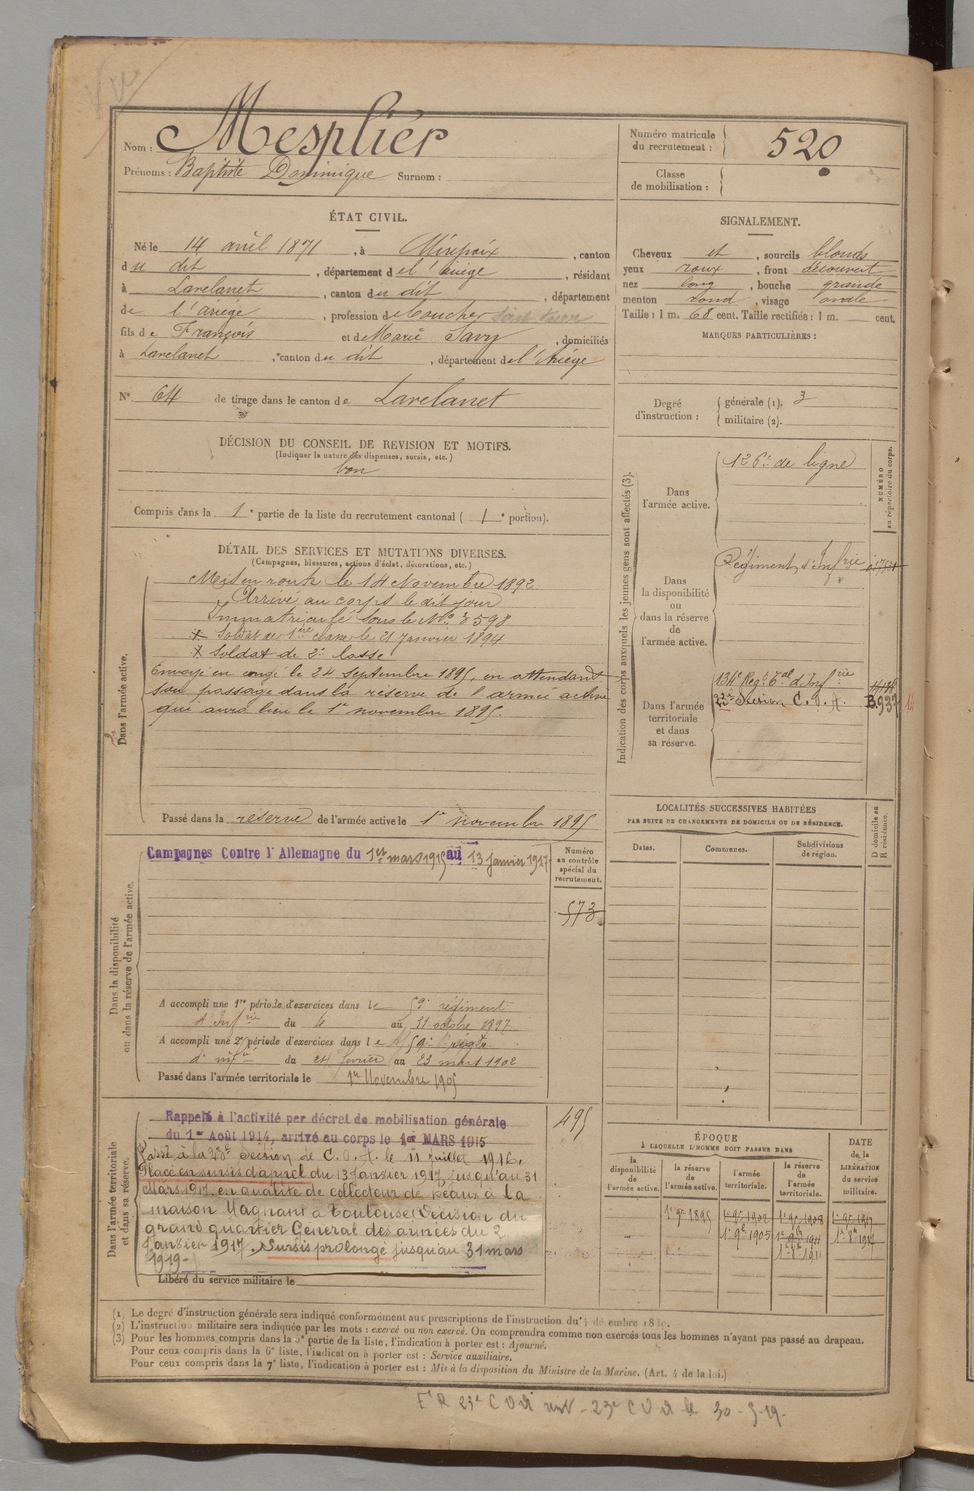 Nom : Mesplier
Prénoms : Baptiste Dominique Surnom :
Numéro matricule du recrutement : 520
Classe de mobilisation :
ÉTAT CIVIL.
Né le 14 avril 1871, à Mirepoix, canton
du dit, département de l'Ariège, résidant
à Lavelanet, canton du dit, département
de l'ariege, profession de boucher
fils de François et de Marie Savy, domiciliés
à Lavelanet, canton du dit, département de l'Ariège
N° 64 de tirage dans le canton de Lavelanet
DÉCISION DU CONSEIL DE REVISION ET MOTIFS.
(Indiquer la nature des dispenses, sursis, etc.)
bon
Compris dans la 1e partie de la liste du recrutement cantonal ( 1e portion).
SIGNALEMENT.
Cheveux et, sourcils blonds
yeux roux, front découvert
nez long, bouche grande
menton rond, visage ovale
Taille : 1 m. 68 cent. Taille rectifiée : 1 m. cent.
MARQUES PARTICULIÈRES :
Degré d'instruction : générale (1). 3
militaire (2).
DÉTAIL DES SERVICES ET MUTATIONS DIVERSES.
(Campagnes, blessures, actions d'éclat, décorations, etc.)
Dans l'armée active.
Mis en route le 14 Novembre 1892
Arrivé au corps le dit jour
Immatriculé sous le No 3598
Soldat de 1ère classe le 21 Janvier 1894
Soldat de 2e classe
Envoyé en congé le 24 Septembre 1895, en attendant
son passage dans la réserve de l'armée active
qui aura lieu le 1er novembre 1895.
Passé dans la réserve de l'armée active le 1er novembre 1895
Indication des corps auxquels les jeunes gens sont affectés (3).
NUMÉRO au répertoire du corps.
Dans l'armée active.
126e de ligne
Dans la disponibilité ou dans la réserve de l'armée active.
Régiment d'Infrie
Dans l'armée territoriale et dans sa réserve.
134e Regt Tal d'Infrie
Section C.O.A.
LOCALITÉS SUCCESSIVES HABITÉES
PAR SUITE DE CHANGEMENTS DE DOMICILE OU DE RÉSIDENCE.
Dates. Communes. Subdivisions de région. D domicile ou R résidence.
Dans la disponibilité ou dans la réserve de l'armée active.
Campagnes Contre l'Allemagne du 1er mars 1915 au 13 janvier 1917
Numéro au contrôle spécial du recrutement.
573
A accompli une 1re période d'exercices dans le 59e régiment
d'Infrie du 4 au 31 octobre 1897
A accompli une 2e période d'exercices dans le 59e
d'infie du 24 février au 23 mars 1902
Passé dans l'armée territoriale le 1er Novembre 1905
Dans l'armée territoriale et dans sa réserve.
495
Rappelé à l'activité par décret de mobilisation générale
du 1er Août 1914, arrivé au corps le 1er MARS 1915
Passé à la Section de C.O.A. le 11 juillet 1916.
Placé en sursis d'appel du 13 Janvier 1917 jusqu'au 31
Mars 1917 en qualité de collecteur de peaux à la
maison Magnant à Toulouse (Décision du
grand quartier General des armées du 2
Janvier 1917. Sursis prolongé jusqu'au 31 mars
1919-
Libéré du service militaire le
ÉPOQUE
À LAQUELLE L'HOMME DOIT PASSER DANS
la disponibilité de l'armée active. la réserve de l'armée active. l'armée territoriale. la réserve de l'armée territoriale.
DATE de la LIBÉRATION du service militaire.
1er 9bre 1895
(1) Le degré d'instruction générale sera indiqué conformément aux prescriptions de l'instruction du
(2) L'instruction militaire sera indiquée par les mots : exercé ou non exercé. On comprendra comme non exercés tous les hommes n'ayant pas passé au drapeau.
(3) Pour les hommes compris dans la 5e partie de la liste, l'indication à porter est : Ajourné.
Pour ceux compris dans la 6e liste, l'indication à porter est : Service auxiliaire.
Pour ceux compris dans la 7e liste, l'indication à porter est : Mis à la disposition du Ministre de la Marine. (Art. 4 de la loi.)